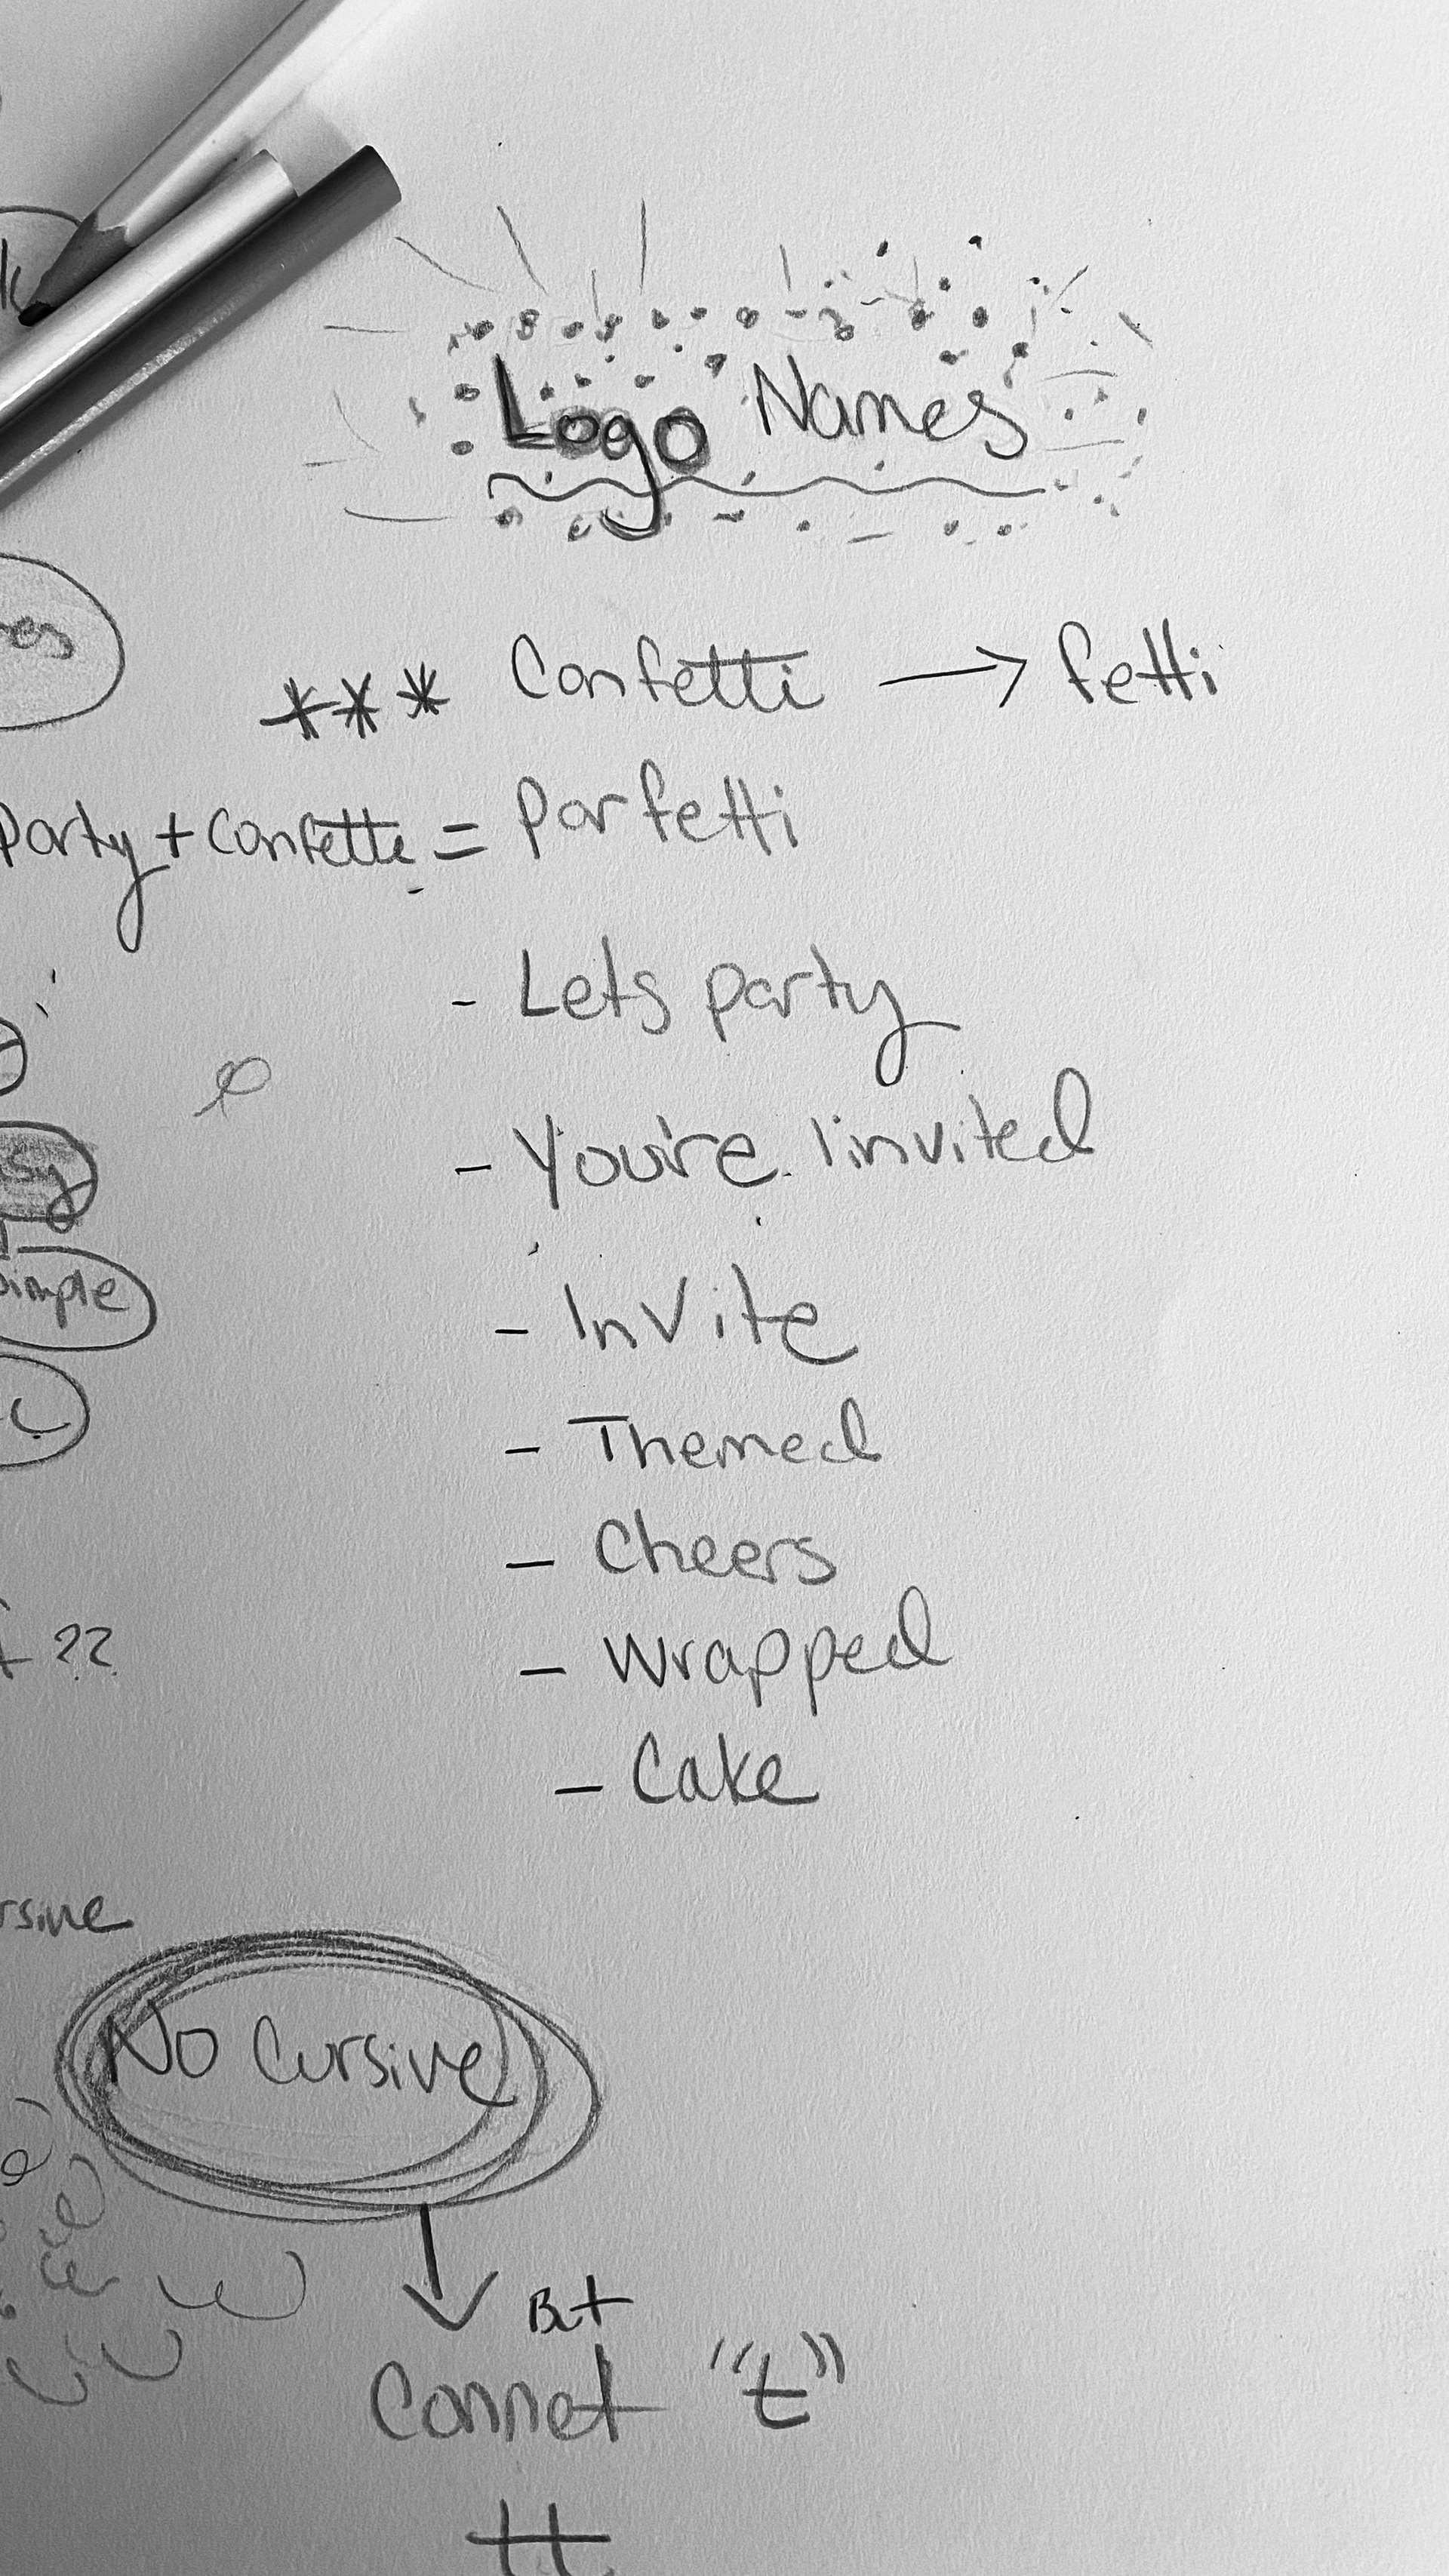 Logo Names
*** Confetti → fetti
Party + Confetti = Parfetti
- Lets party
- You're invited
- Invite
- Themed
- Cheers
- Wrapped
- Cake
simple
??
No Cursive
Connet "t"
tt